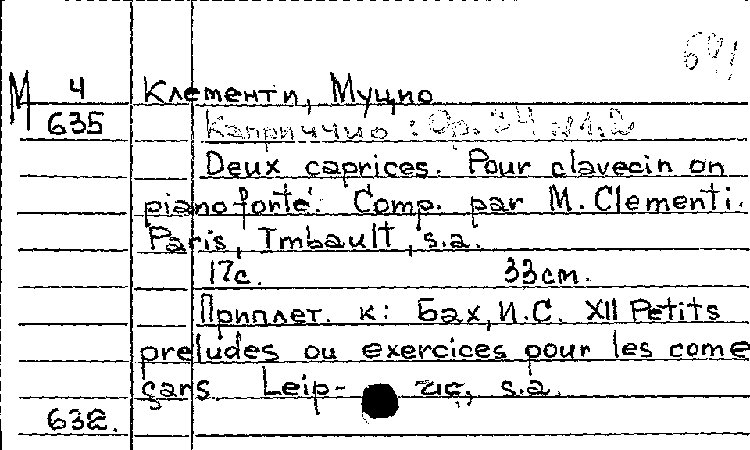 691
М 4 Клементи, Муцио
635 Каприччио: Op. 34 №1.2
Deux caprices. Pour clavecin on
pianoforté. Comp. par M. Clementi.
Paris, Imbault, s.a.
17с. 33см.
Приплет. к: Бах, И.С. XII Petits
preludes ou exercices pour les come
çans. Leip- zig, s.a.
632.